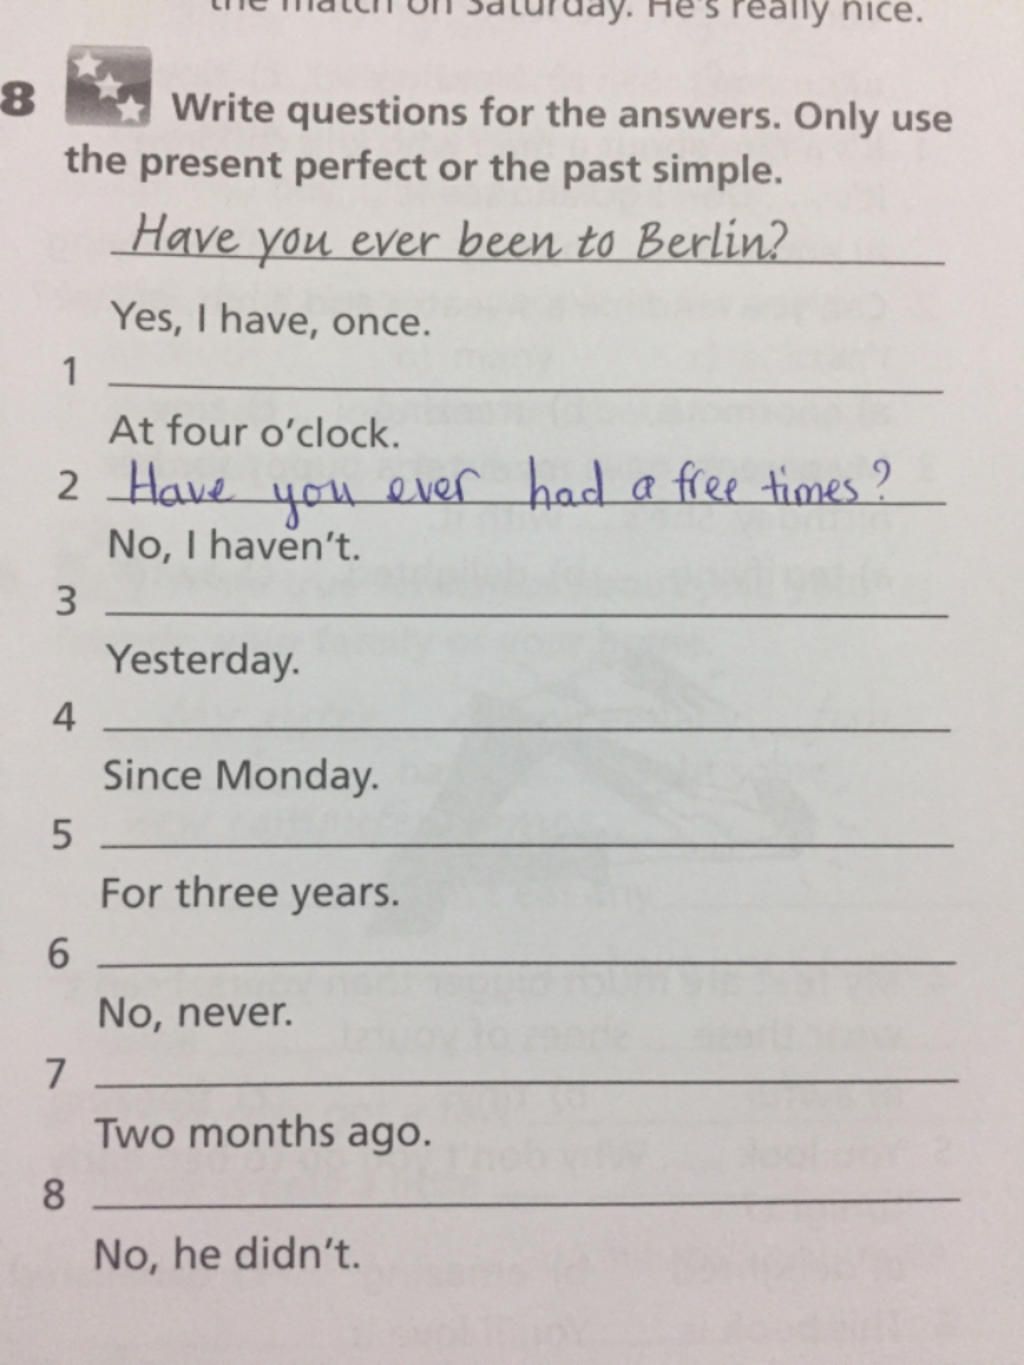 the match on Saturday. He's really nice.
8 Write questions for the answers. Only use
the present perfect or the past simple.
Have you ever been to Berlin?
Yes, I have, once.
1
At four o'clock.
2 Have you ever had a free times?
No, I haven't.
3
Yesterday.
4
Since Monday.
5
For three years.
6
No, never.
7
Two months ago.
8
No, he didn't.